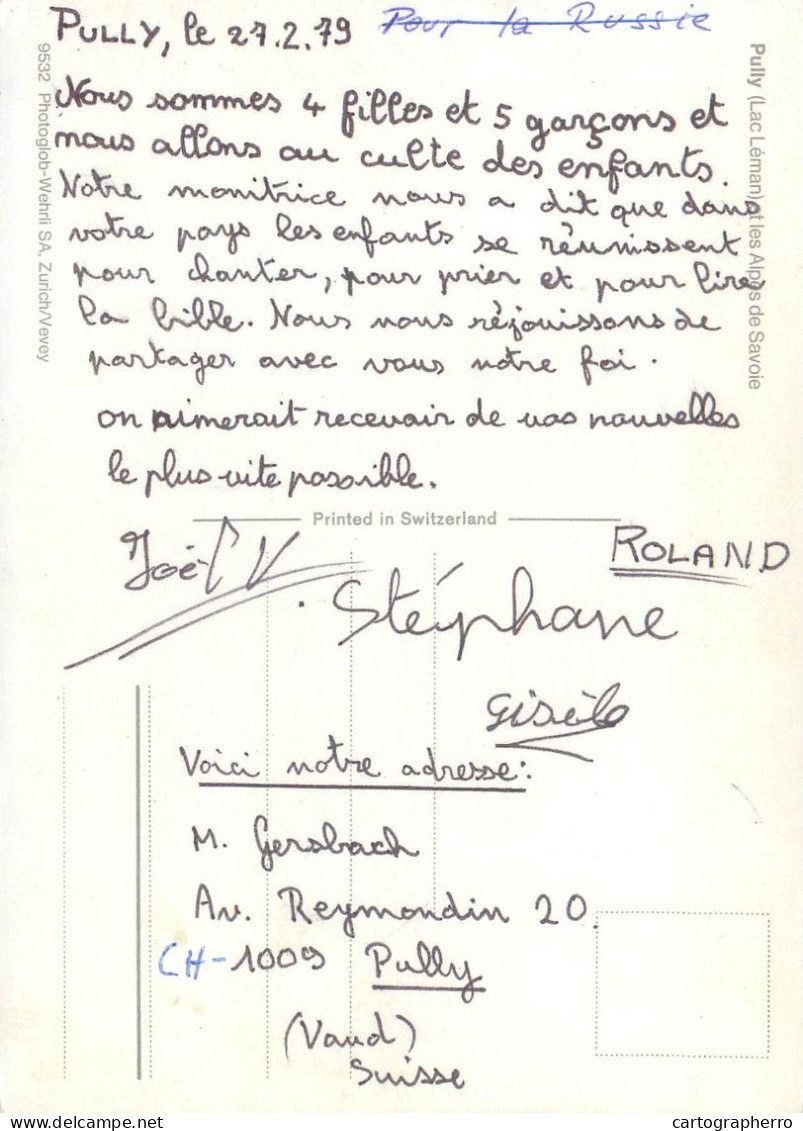 PULLY, le 27.2.79 Pour la Russie
Nous sommes 4 filles et 5 garçons et
nous allons au culte des enfants.
Notre monitrice nous a dit que dans
votre pays les enfants se réunissent
pour chanter, pour prier et pour lire
la bible. Nous nous réjouissons de
partager avec vous notre foi.
on aimerait recevoir de vos nouvelles
le plus vite possible.
Printed in Switzerland
Joël V
ROLAND
Stéphane
Gisèle
Voici notre adresse:
M. Gersbach
Av. Reymondin 20
CH-1009 Pully
(Vaud)
Suisse
9532 Photoglob-Wehrli SA, Zurich/Vevey
Pully (Lac Léman) et les Alpes de Savoie
cartographerro